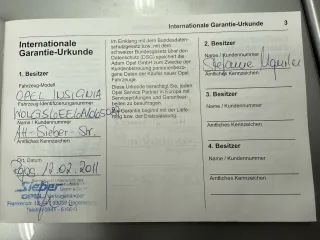 Internationale Garantie-Urkunde 3
Internationale
Garantie-Urkunde
1. Besitzer
Fahrzeug-Modell
OPEL INSIGNIA
Fahrzeug-Identifizierungsnummer
AH-Sieber-Str.
Amtliches Kennzeichen
Ort, Datum
12.02.2011
Sieber
Im Einklang mit dem Bundesdaten-
schutzgesetz bzw. mit dem
schweizer Bundesgesetz über den
Datenschutz (DSG) speichert die
Adam Opel GmbH zum Zwecke der
Kundenbetreuung personenbezo-
gene Daten der Käufer neuer Opel
Fahrzeuge.
Diese Urkunde berechtigt Sie, jeden
Opel Service Partner in Europa mit
Serviceprüfungen und Garantiear-
beiten zu beauftragen.
Die Garantie beginnt mit der Liefe-
rung bzw. der Erstzulassung.
2. Besitzer
Name / Kundennummer
Stefanie
Amtliches Kennzeichen
3. Besitzer
Name / Kundennummer
Amtliches Kennzeichen
4. Besitzer
Name / Kundennummer
Amtliches Kennzeichen